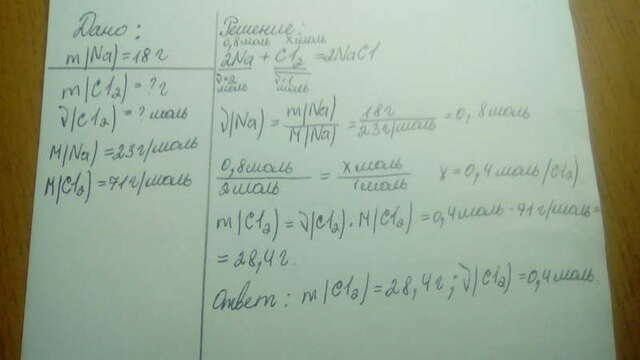 Дано:
m(Na)=18г
m(Cl2)=?г
ν(Cl2)=?моль
M(Na)=23г/моль
M(Cl2)=71г/моль
Решение:
0,8моль xмоль
2Na + Cl2 =2NaCl
ν=2 ν=1
моль моль
ν(Na)=m(Na)/M(Na)=18г/23г/моль=0,8моль
0,8моль/2моль = xмоль/1моль x=0,4моль(Cl2)
m(Cl2)=ν(Cl2)·M(Cl2)=0,4моль·71г/моль=
=28,4г.
Ответ: m(Cl2)=28,4г; ν(Cl2)=0,4моль.